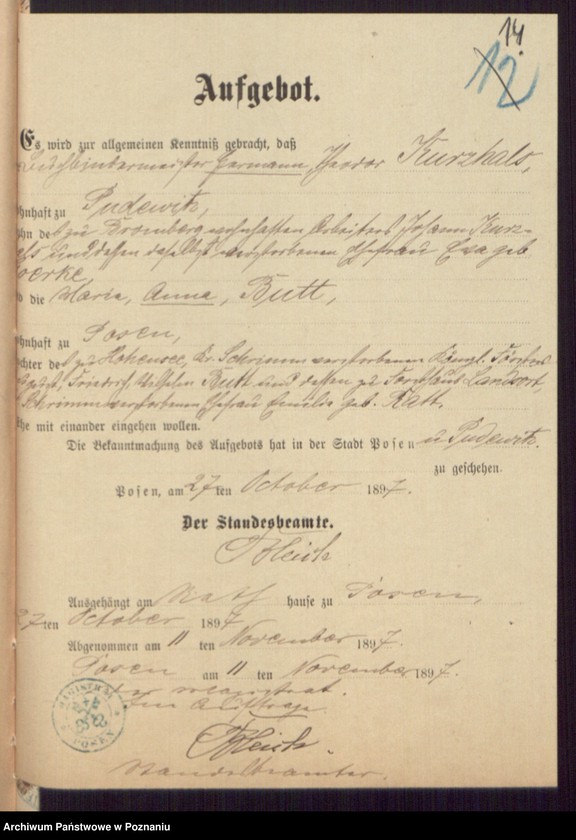 14.
12
Aufgebot.
Es wird zur allgemeinen Kenntniß gebracht, daß
Buchbindermeister Hermann, Theodor Kurzhals,
ohnhaft zu Pudewitz,
hn des zu Bromberg wohnhaften Arbeiters Johann Kurz-
als und dessen daselbst verstorbenen Ehefrau Eva geb
oerke,
d die Maria, Anna, Butt,
ohnhaft zu Posen,
chter des zu Hohensee, Kr. Schrimm verstorbenen Königl. Försters
Friedrich Wilhelm Butt und dessen zu Forsthaus
Schrimm verstorbenen Ehefrau Emilie geb. Ratt.
he mit einander eingehen wollen.
Die Bekanntmachung des Aufgebots hat in der Stadt Posen u Pudewitz.
zu geschehen.
Posen, am 27ten October 1897.
Der Standesbeamte.
Bleich
Ausgehängt am Rath hause zu Posen,
27ten October 1897
Abgenommen am 11 ten November 1897.
Posen am 11 ten November 1897.
Der Magistrat.
Im Auftrage.
MAGISTRAT
POSEN
Bleich.
Standesbeamter.
Archiwum Państwowe w Poznaniu